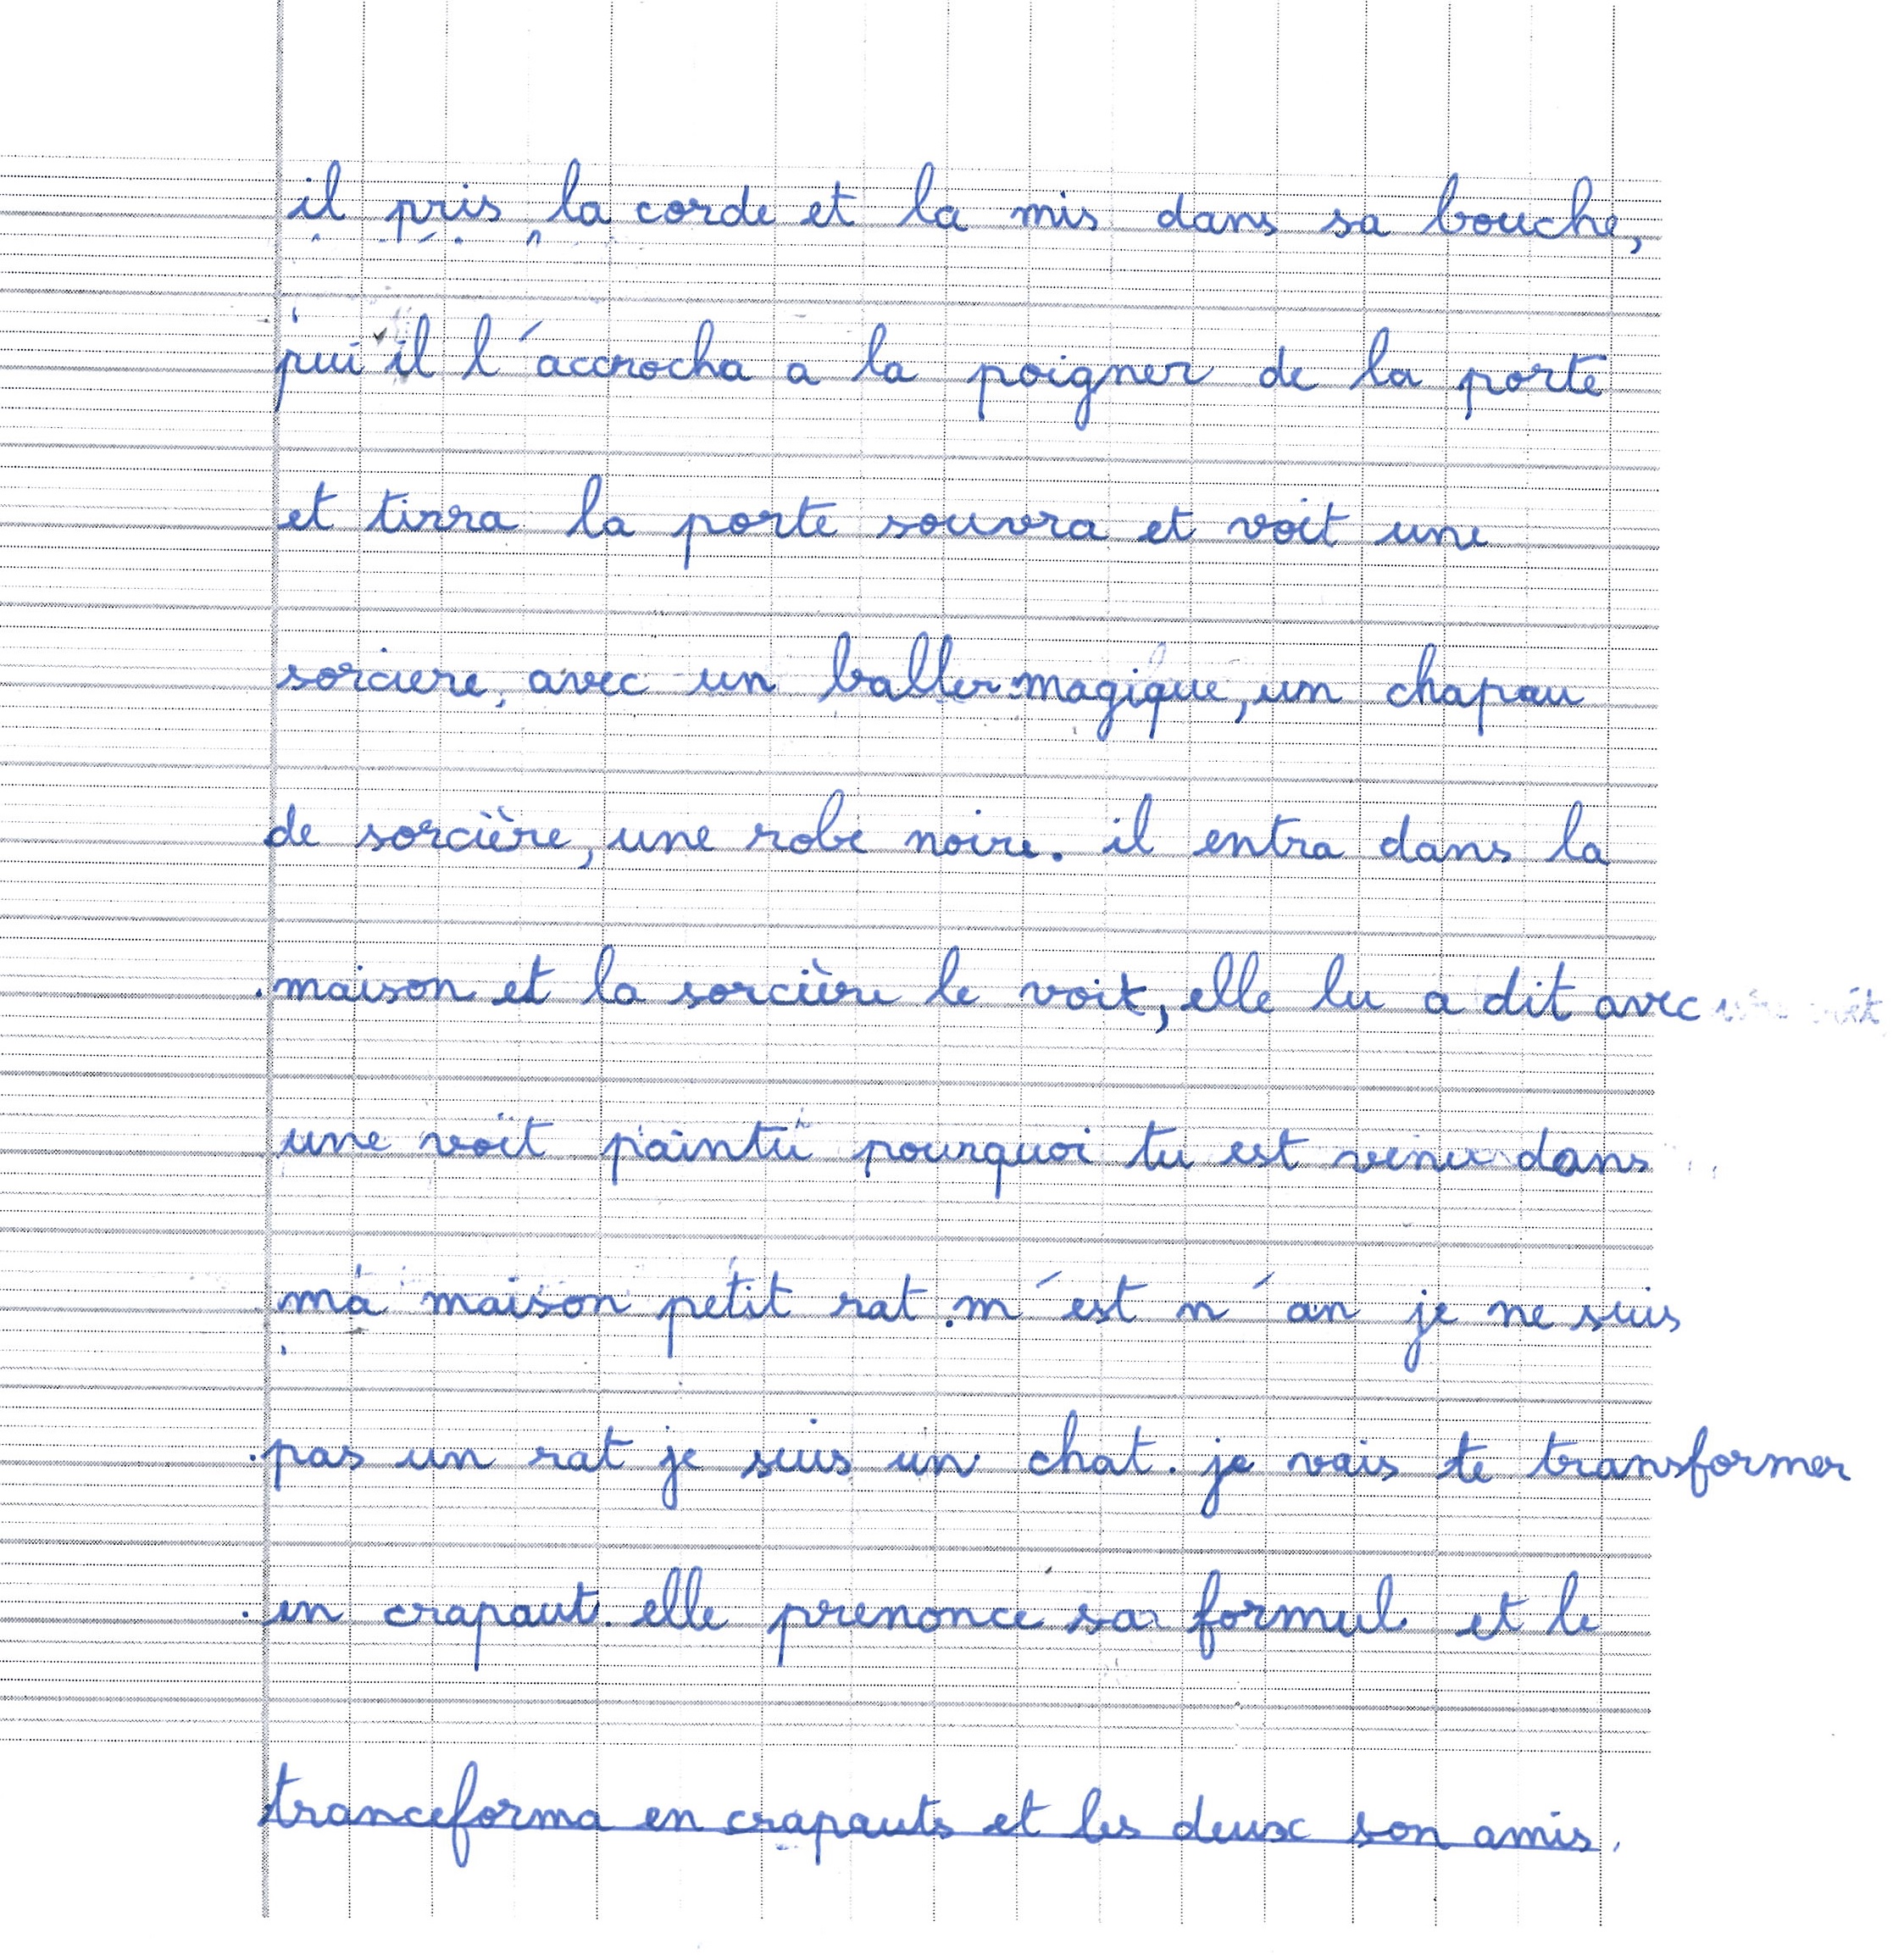 il pris la corde et la mis dans sa bouche,
pui il l'accrocha a la poigner de la porte
et tirra la porte souvra et voit une
sorciere, avec un baller magique, un chapau
de sorcière, une robe noire. il entra dans la
maison et la sorcière le voit, elle lu a dit avec
une voit paintu pourquoi tu est venu dans
ma maison petit rat. m'est n'an je ne suis
pas un rat je suis un chat. je vais te transformer
en crapaut. elle prenonce sa formul et le
tranceforma en crapauts et les deux son amis.